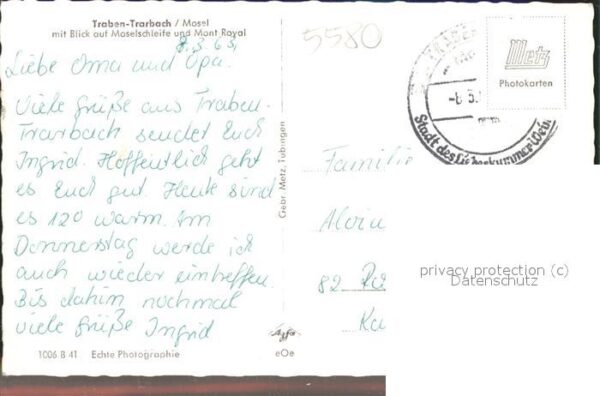 Traben-Trarbach / Mosel
mit Blick auf Moselschleife und Mont Royal
8.3.65
Liebe Oma und Opa.
Viele Grüße aus Traben-
Trarbach sendet Euch
Ingrid. Hoffentlich geht
es Euch gut. Heute sind
es 12o warm. Am
Donnerstag werde ich
auch wieder eintreffen.
Bis dahin nochmal
viele Grüße Ingrid
1006 B 41 Echte Photographie
Gebr. Metz, Tübingen
Agfa
eOe
5580
Metz
Photokarten
Stadt des
Familie
82
privacy protection (c)
Datenschutz